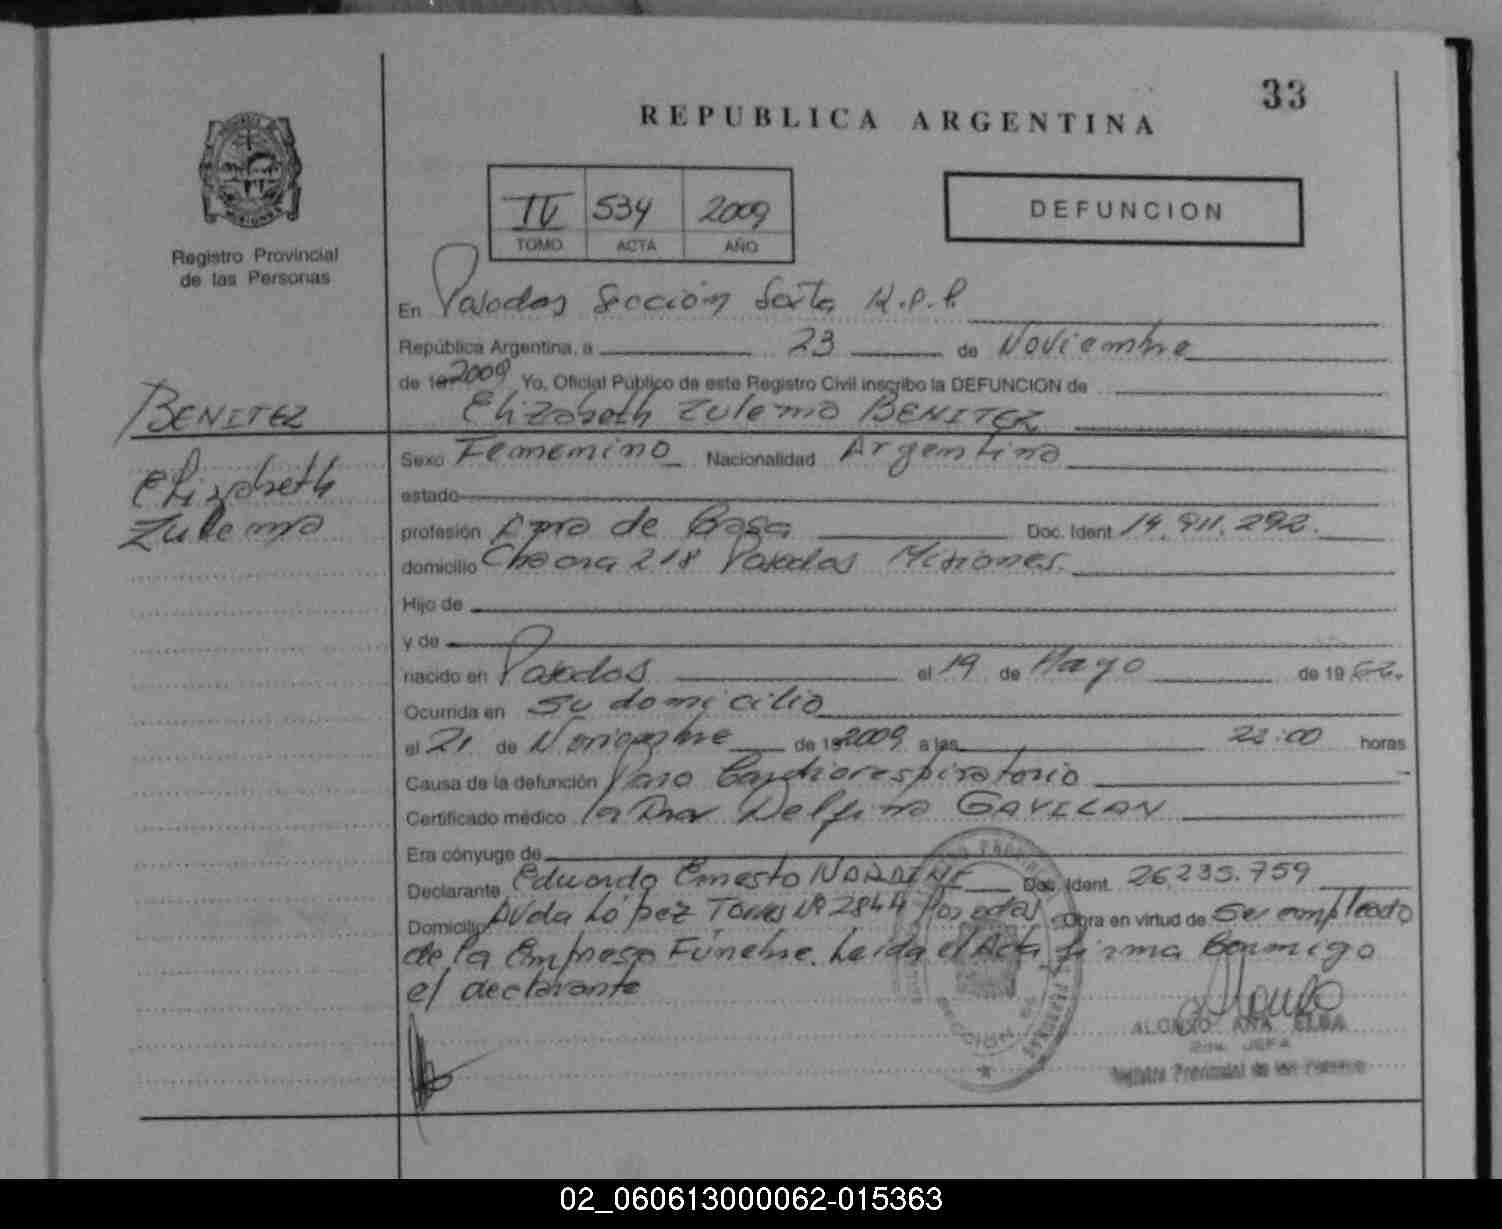 33
REPUBLICA ARGENTINA
IV 534 2009
TOMO ACTA AÑO
DEFUNCION
Registro Provincial
de las Personas
En Posadas Sección Sexta R.P.P.
República Argentina, a 23 de Noviembre
de 19 2009 Yo, Oficial Público de este Registro Civil inscribo la DEFUNCION de
BENITEZ
Elizabeth Zulema BENITEZ
Elizabeth
Zulema
Sexo Femenino Nacionalidad Argentina
estado
profesión Ama de Casa Doc. Ident. 14.911.292.
domicilio 218 Posadas Misiones.
Hijo de
y de
nacido en Posadas el 19 de Mayo de 19
Ocurrida en su domicilio
el 21 de Noviembre de 19 2009 a las 22:00 horas
Causa de la defunción Paro Cardiorespiratorio
Certificado médico la Dra Delfina GAVILAN
Era cónyuge de
Declarante Eduardo Ernesto Doc. Ident. 26.235.759
Domicilio Avda López Torres Nº 2844 Posadas Obra en virtud de Ser empleado
de la Empresa Fúnebre. Leída el Acta firma Conmigo
el declarante
ALONZO ANA ELBA
2da. JEFA
Registro Provincial de las Personas
02_060613000062-015363